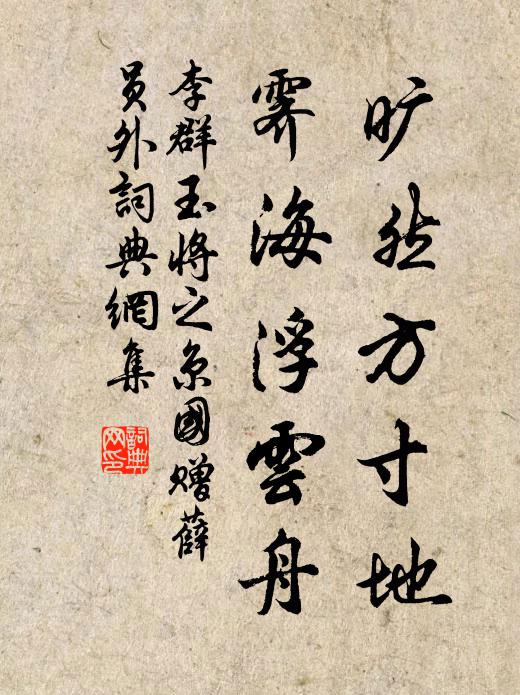 旷然方寸地
霁海浮雲舟
李群玉將之京國赠薛
員外詞典網集
詞典
网印